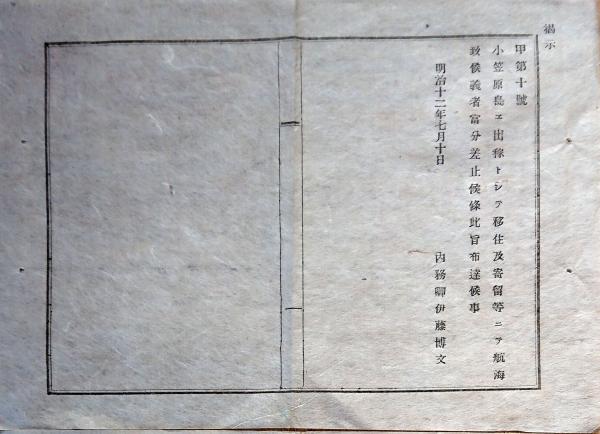 揭示
甲第十號
小笠原島エ出稼トシテ移住及寄留等ニテ航海
致候義者當分差止候條此旨布達候事
明治十二年七月十日
內務卿伊藤博文